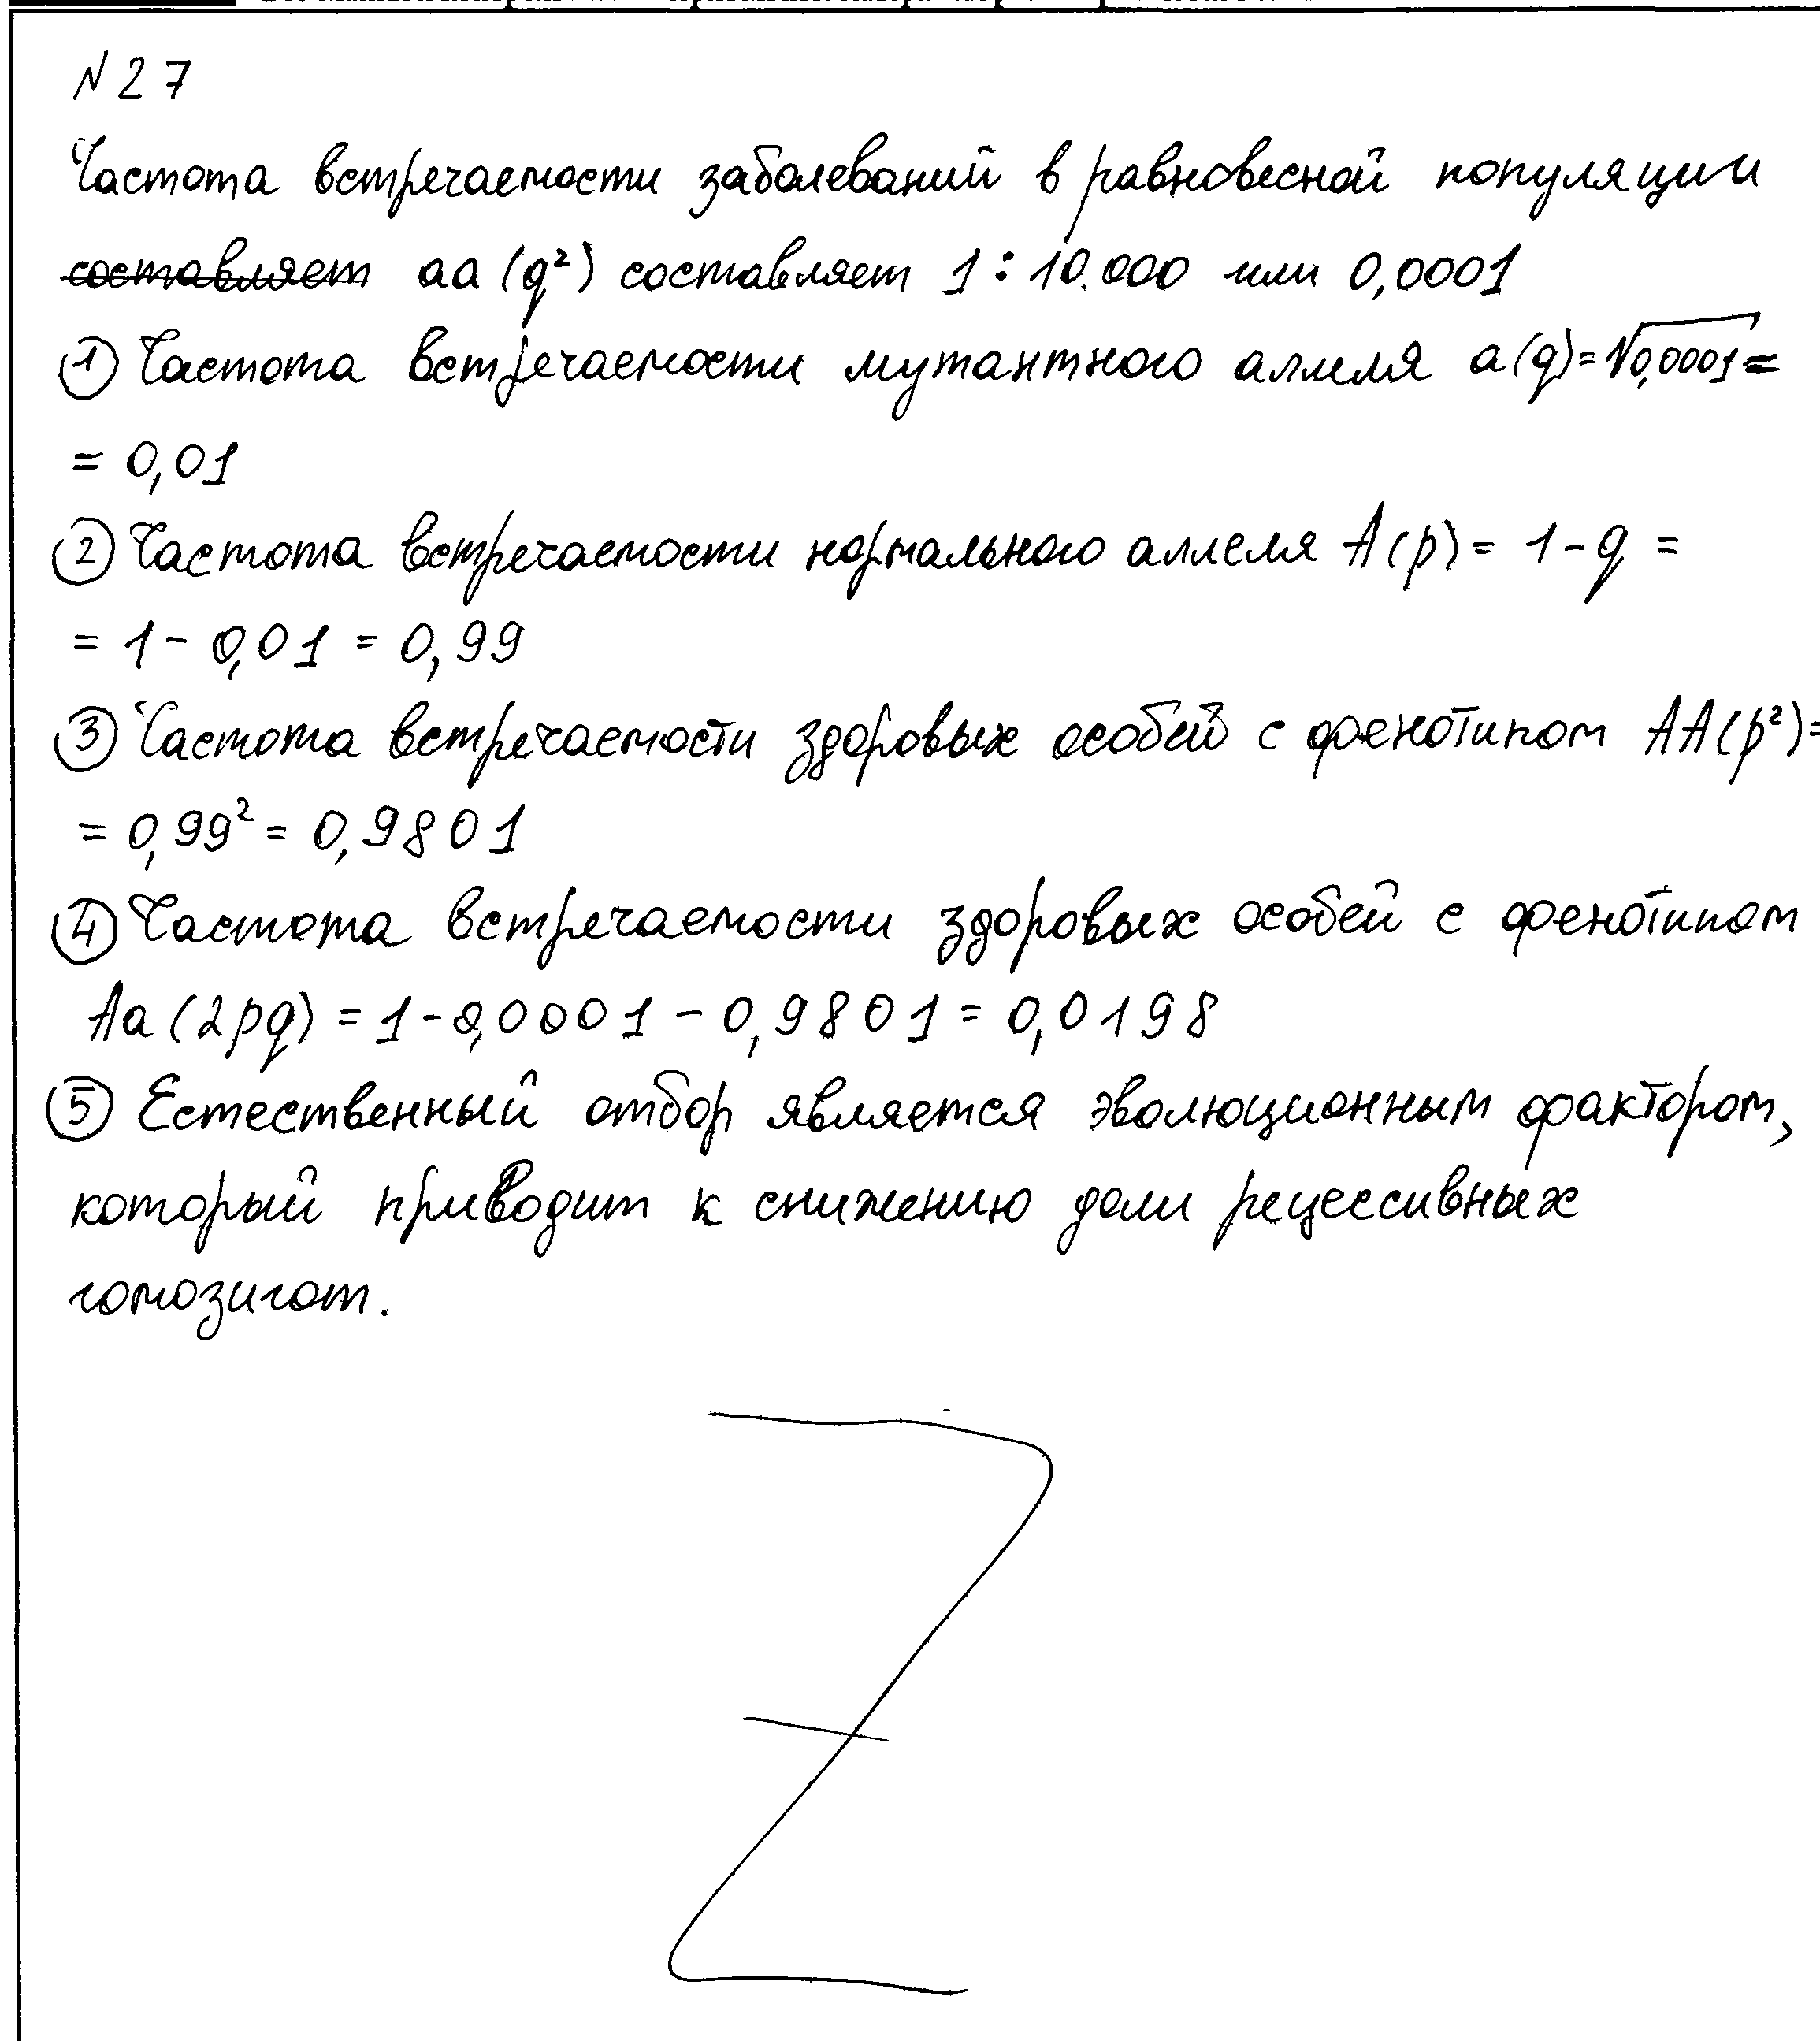 N 27
Частота встречаемости заболеваний в равновесной популяции
составляет aa (q²) составляет 1 : 10.000 или 0,0001
① Частота встречаемости мутантного аллеля a(q)=√0,0001=
= 0,01
② Частота встречаемости нормального аллеля A(p)= 1-q =
= 1- 0,01 = 0,99
③ Частота встречаемости здоровых особей с фенотипом AA(p²)=
= 0,99² = 0,9801
④ Частота встречаемости здоровых особей с фенотипом
Aa (2pq) = 1-0,0001 - 0,9801 = 0,0198
⑤ Естественный отбор является эволюционным фактором,
который приводит к снижению доли рецессивных
гомозигот.
Z